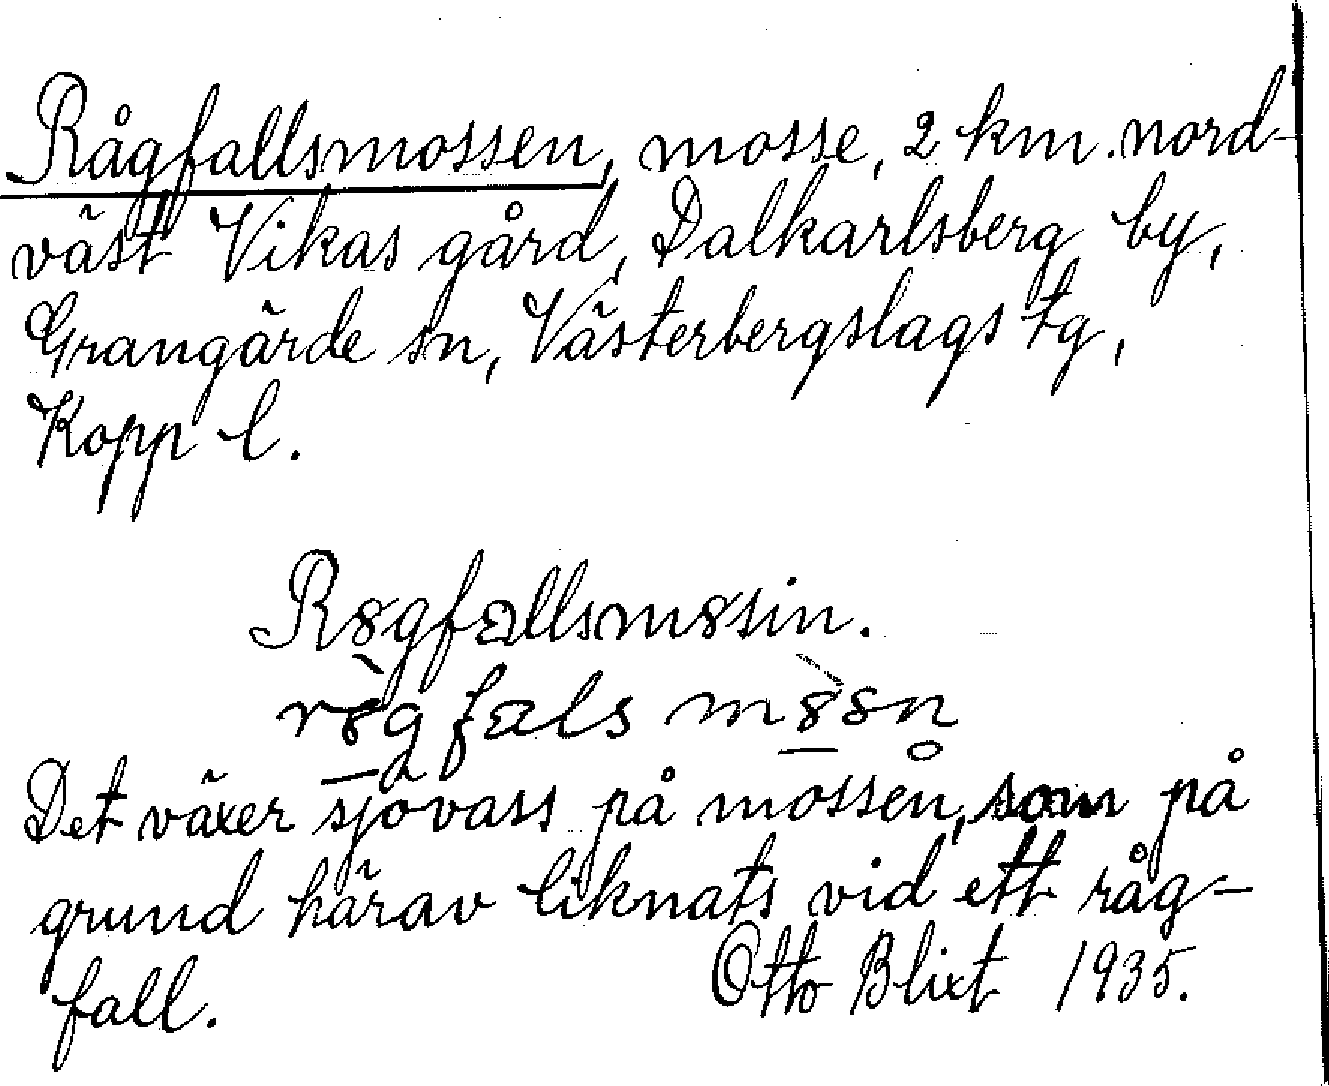 Rågfallsmossen, mosse, 2 km. nord-
väst Vikas gård, Dalkarlsberg by,
Grangärde sn, Västerbergslags tg,
Kopp l.
Rȣgfallsmȣsin.
rȣ̀g fals mȣ̀sn̥
Det växer sjövass på mossen, som på
grund härav liknats vid ett råg-
fall. Otto Blixt 1935.